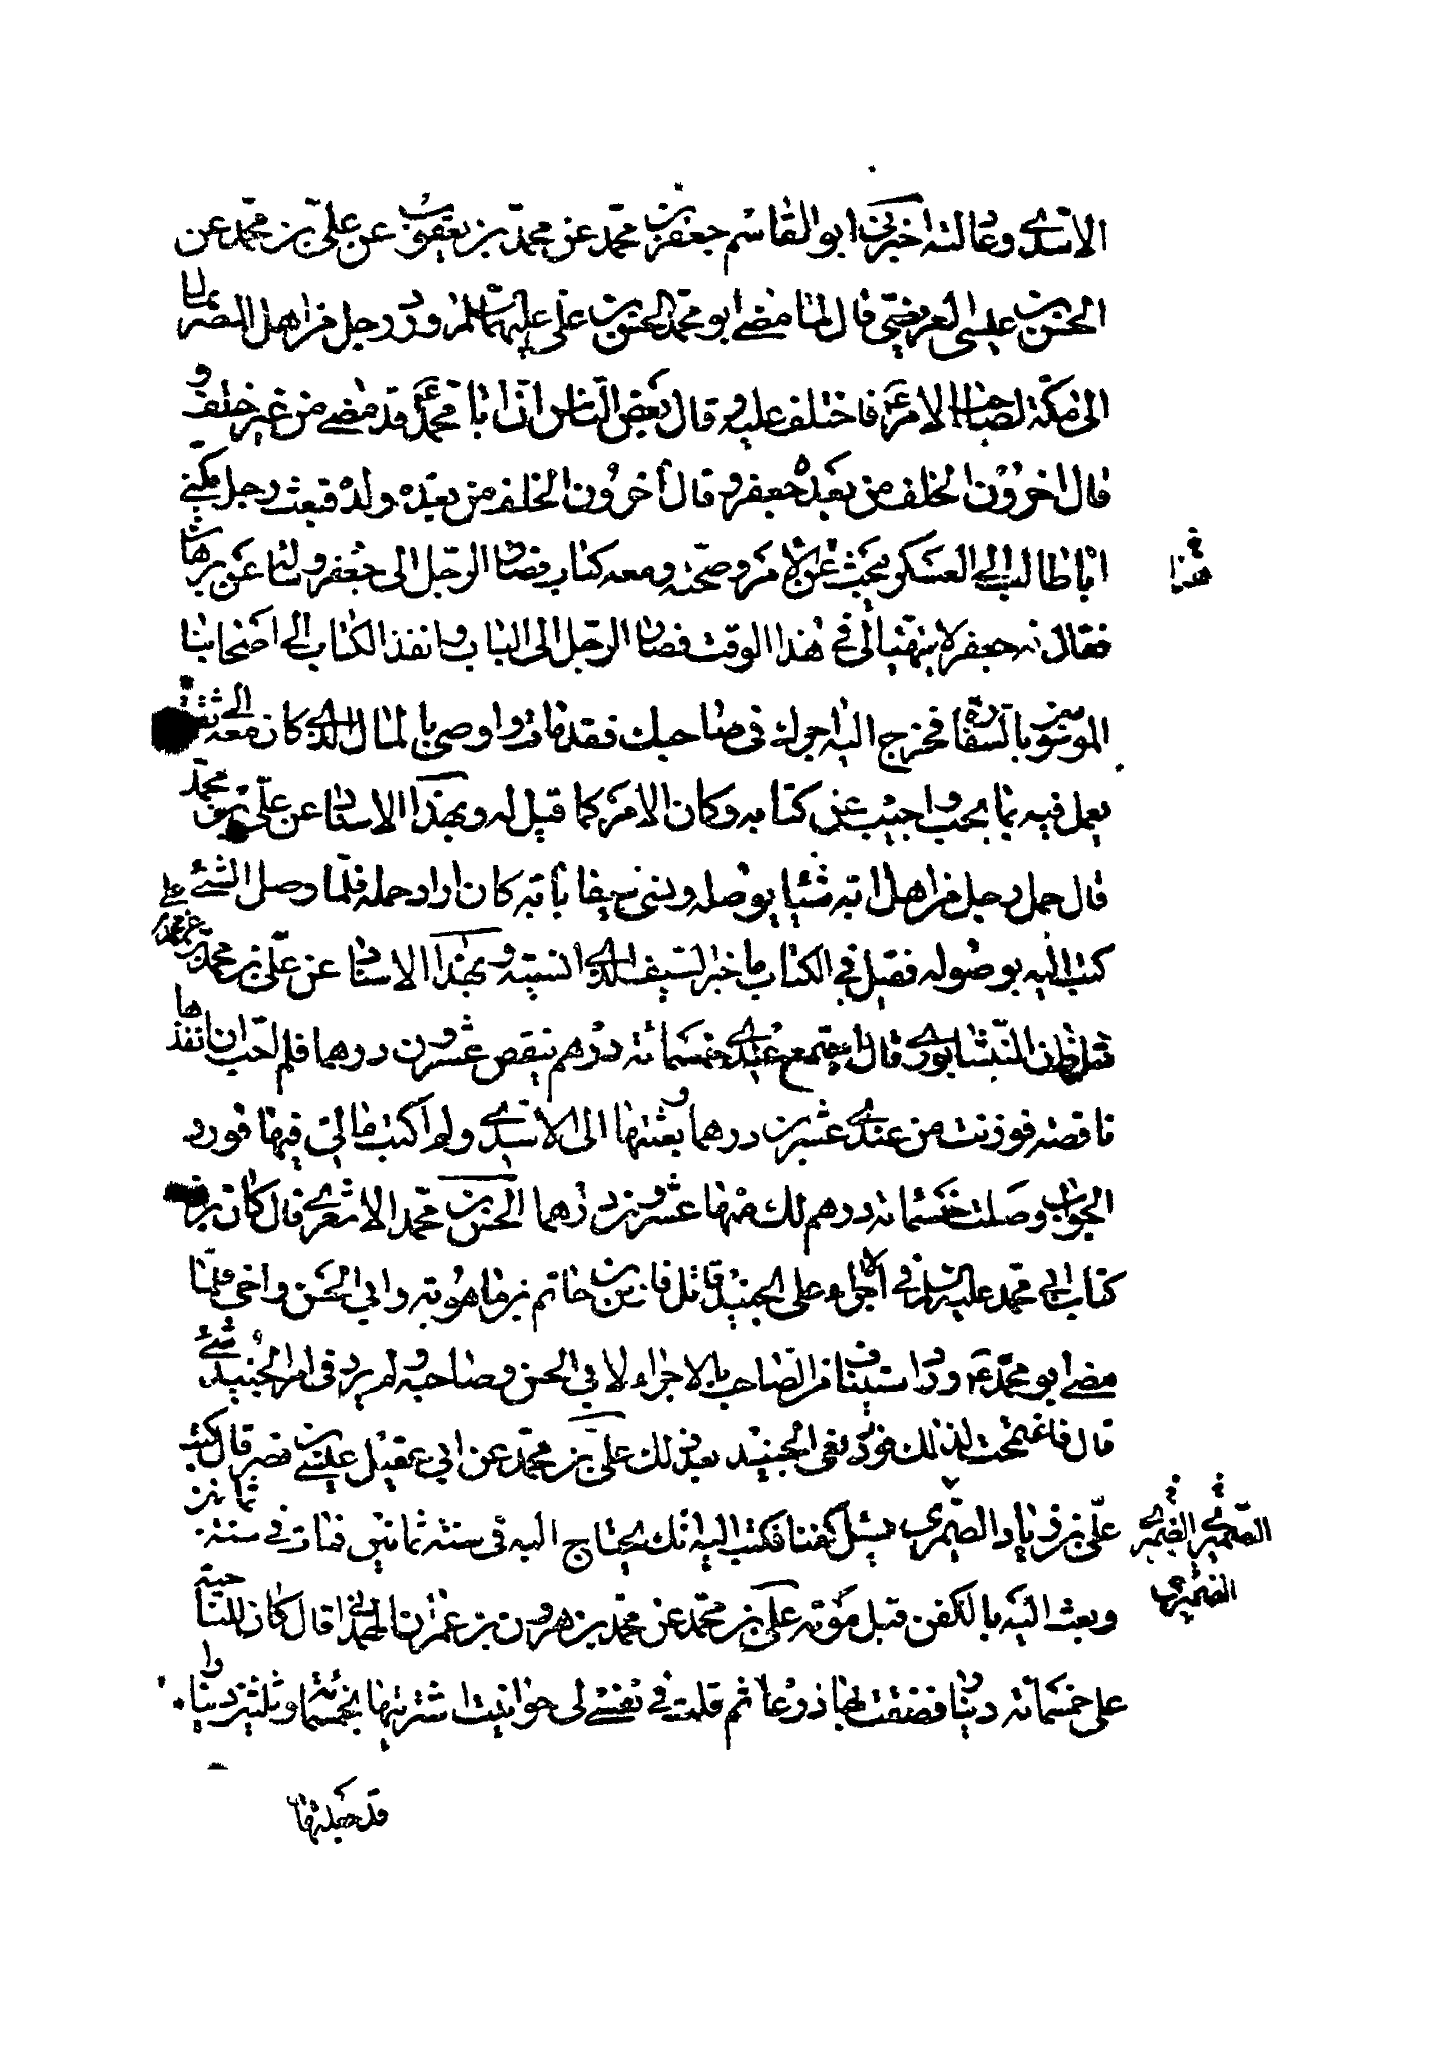 الاسدي وعالته اخبرني ابو القاسم جعفر بن محمد عن محمد بن يعقوب عن علي بن محمد عن
الحسن بن عيسى العريضي قال لما مضى ابو محمد الحسن بن علي عليهما السلم ورد رجل من اهل مصر بمال
الى مكة لصاحب الامر ع فاختلف عليه وقال بعض الناس ان ابا محمد ع قد مضى من غير خلف و
قال اخرون الخلف من بعده جعفر وقال اخرون الخلف من بعده ولده فبعث رجل يكنى
ابا طالب الى العسكر يبحث عن الامر وصحته ومعه كتاب فصار الرجل الى جعفر وساله عن برهان
هذا
فقال له جعفر لا يتهيا لي في هذا الوقت فصار الرجل الى الباب وانفذ الكتاب الى اصحابنا
الموسومين بالسفارة فخرج اليه اجرك في صاحبك فقد مات واوصى بالمال الذي كان معه الى ثقة
يعمل فيه بما يجب واجيب عن كتابه وكان الامر كما قيل له وبهذا الاسناد عن علي بن محمد
قال حمل رجل من اهل ابه شيئا يوصله ونسي سيفا بابه كان اراد حمله فلما وصل الشيء
كتب اليه بوصوله فقيل في الكتاب ما خبر السيف الذي انسيته وبهذا الاسناد عن علي بن محمد عن محمد بن علي
شاذان النيشابوري قال اجتمع عندي خمسمائة درهم ينقص عشرون درهما فلم احب ان انفذها
ناقصه فوزنت من عندي عشرين درهما وبعثتها الى الاسدي ولم اكتب مالي فيها فورد
الجواب وصلت خمسمائة درهم لك منها عشرون درهما الحسن بن محمد الاشعري قال كان يرد
كتاب ابي محمد عليه السلام في الاجراء على الجنيد قاتل فارس بن حاتم بن ماهويه وابي الحسن واخي فلما
مضى ابو محمد ع ورد استيناف من الصاحب بالاجراء لابي الحسن وصاحبه ولم يرد في امر الجنيد شيء
قال فاغتممت لذلك فورد نعي الجنيد بعد ذلك علي بن محمد عن ابي عقيل عيسى بن نصر قال كتب
علي بن زياد الصيمري يسئل كفنا فكتب اليه انك تحتاج اليه في سنة ثمانين فمات في سنة ثمانين
الصيمري الضمري
الضميري
وبعث اليه بالكفن قبل موته علي بن محمد عن محمد بن هرون بن عمران الهمداني قال كان للناحية
علي خمسمائة دينار فضقت بها ذرعا ثم قلت في نفسي لي حوانيت اشتريتها بخمسمائة وثلثين دينارا
قد جعلتها